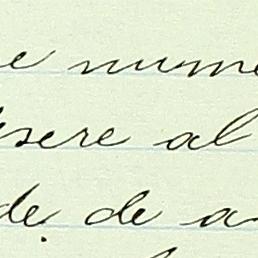 e nume
sere al
de de a